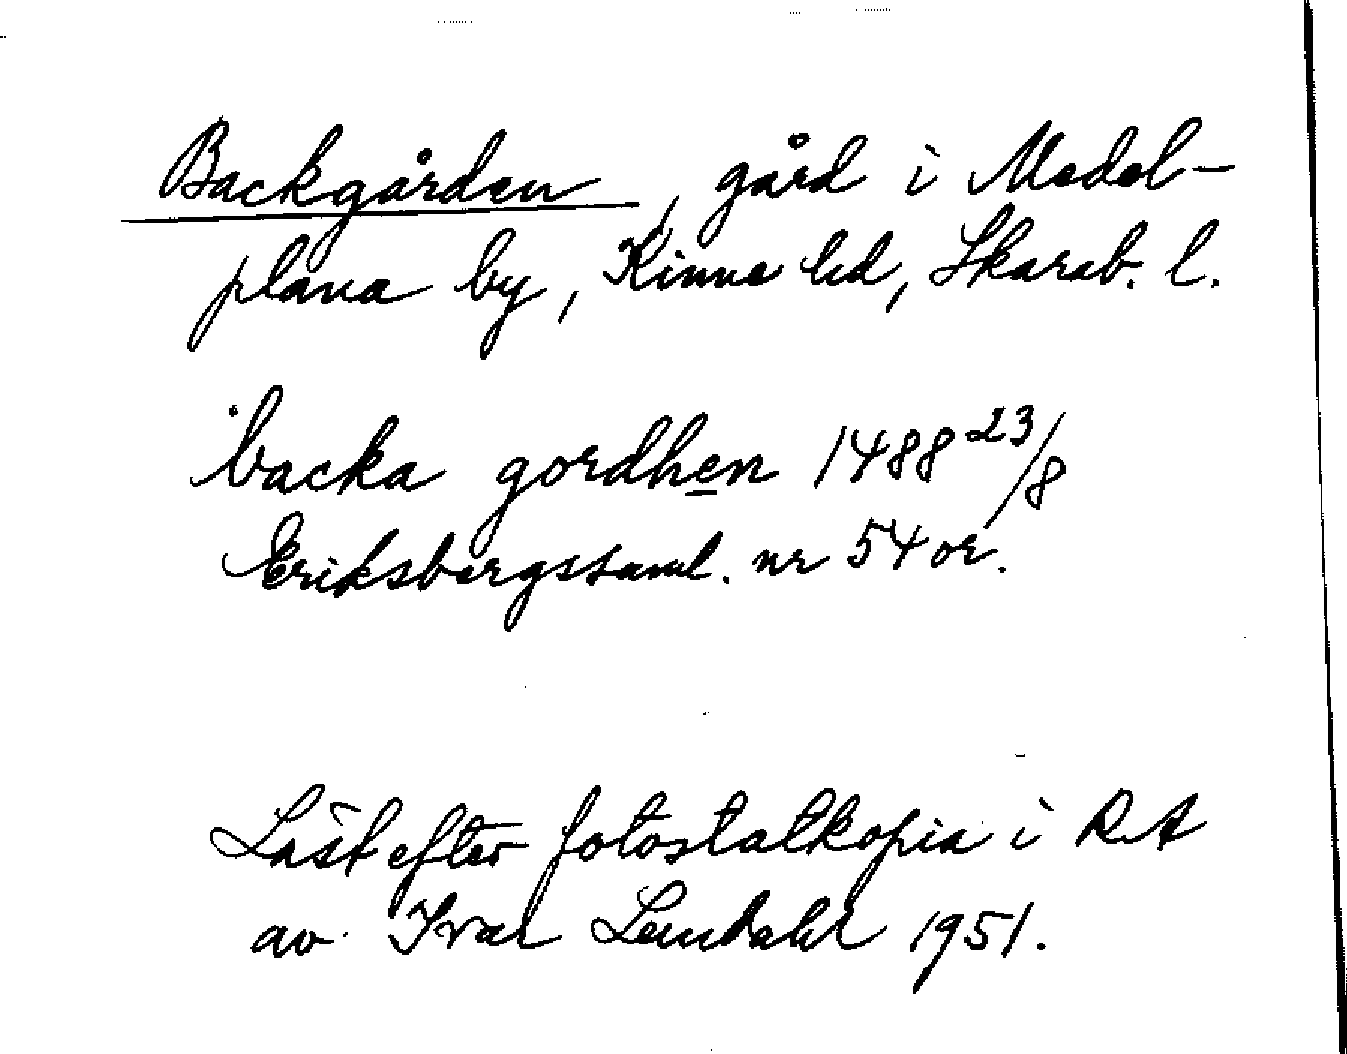 Backgården, gård i Medel-
plana by, Kinne hd, Skarab. l.
backa gordhen 1488 23/8
Eriksbergssaml. nr 54 or.
Läst efter fotostatkopia i RA
av Ivar Lundahl 1951.